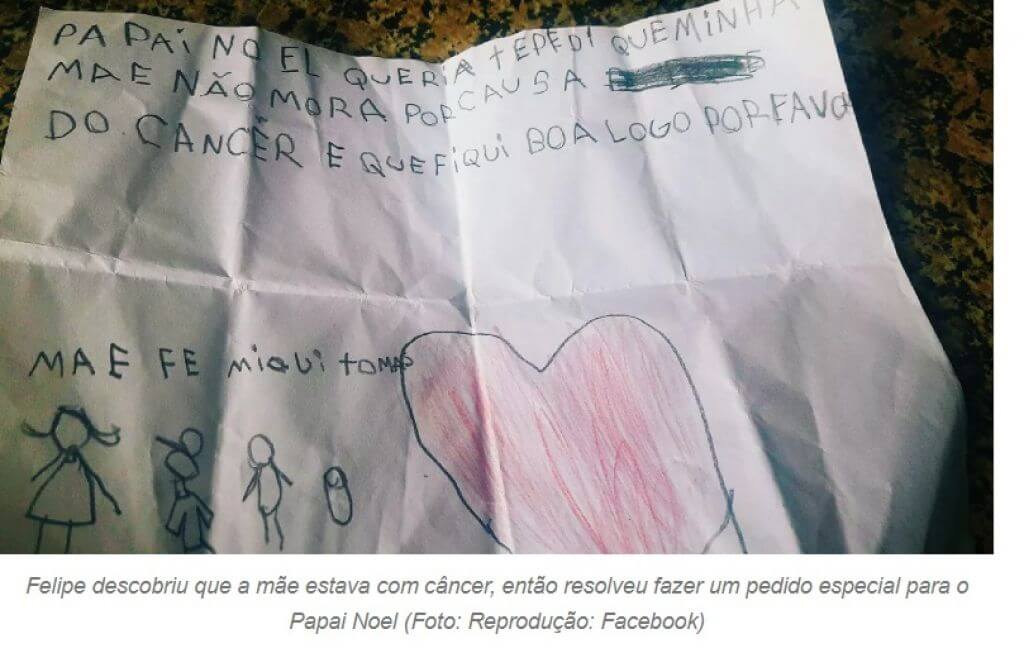 PAPAI NOEL QUERIA TEPEDI QUEMINHA
MAE NÃO MORA PORCAUSA
DO CANCÊR E QUEFIQUI BOA LOGO PORFAVO
MAE FE miqui TOMAS
Felipe descobriu que a mãe estava com câncer, então resolveu fazer um pedido especial para o
Papai Noel (Foto: Reprodução: Facebook)